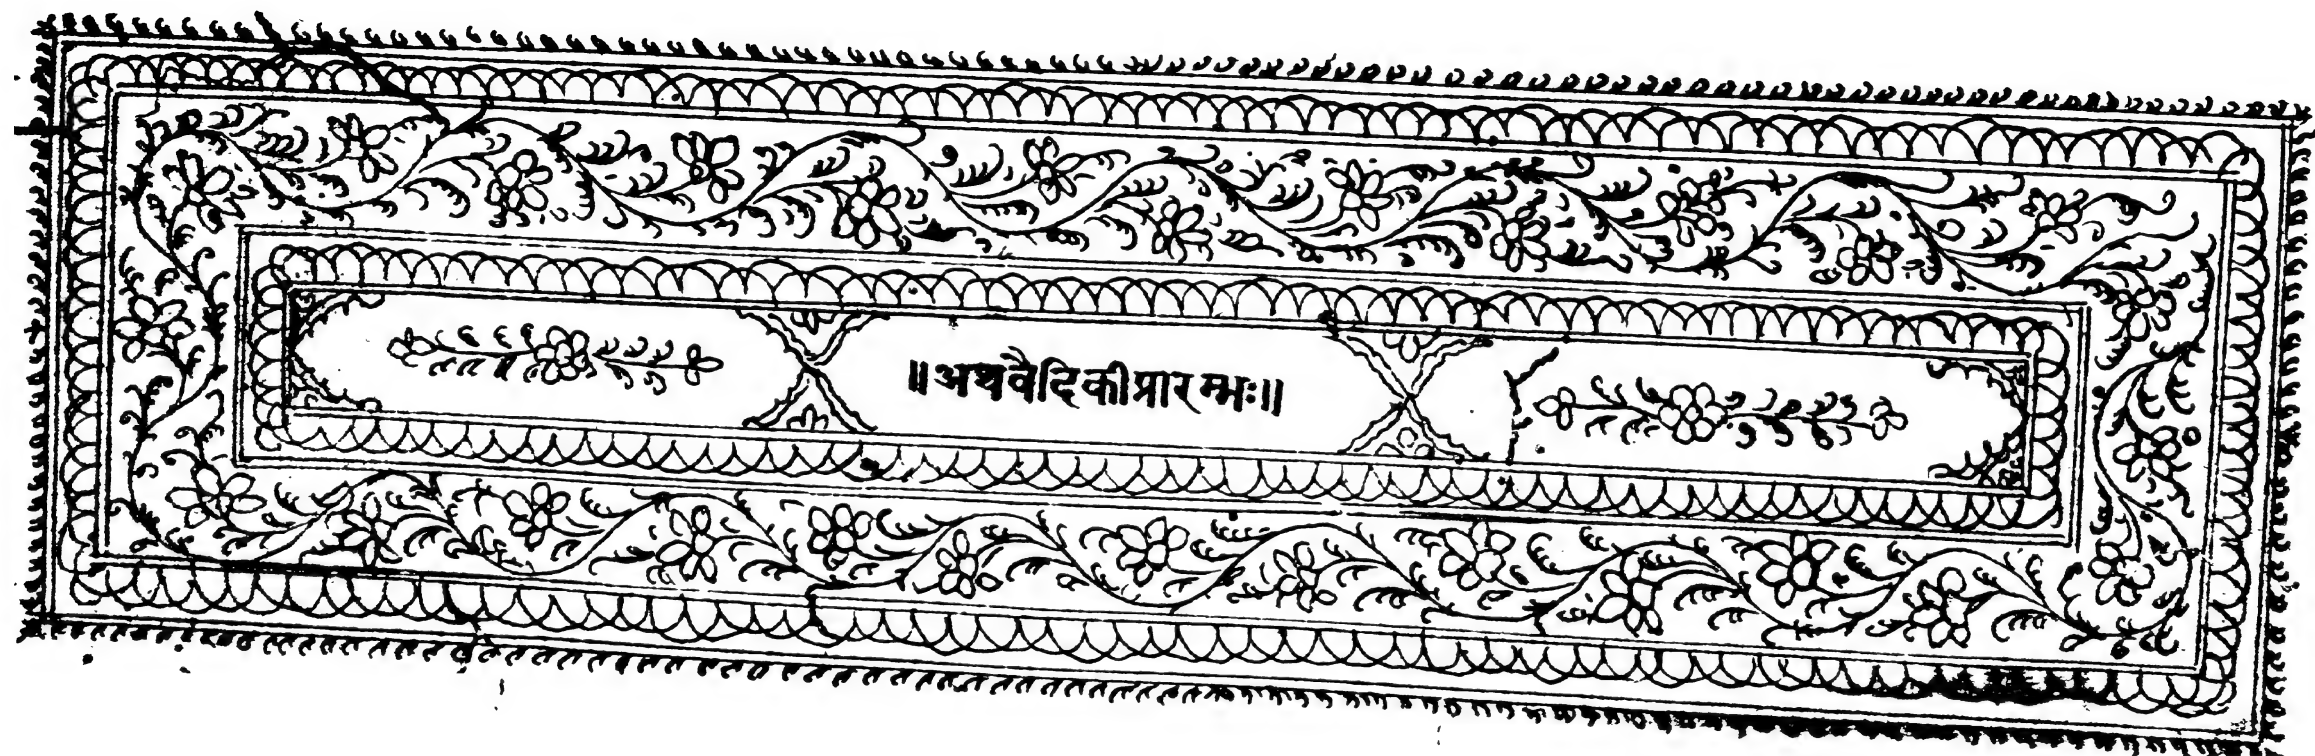 ॥अथवैदिकीप्रारम्भः॥